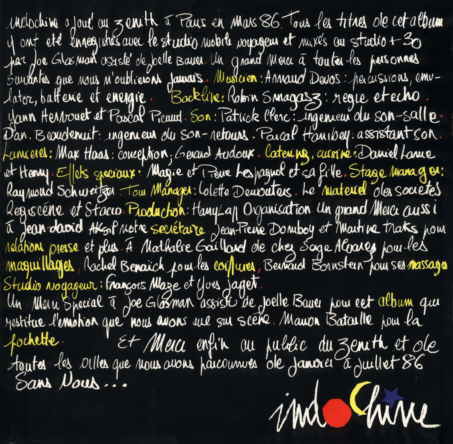 indochine a joué au zenith à Paris en Mars 86 Tous les titres de cet album
y ont été enregistrés avec le studio mobile voyageur et mixés au studio +30
par Joe Glasman assisté de joelle Bauer Un grand Merci à toutes les personnes
que nous n'oublierons jamais. Musicien: Arnaud Devos: percussions, emu-
lator, batterie et energie. Backline: Robin Smagasz: regie et echo.
Yann Hervouet et Pascal Picaud. Son: Patrick Clerc: ingenieur du son-salle
Dan. Beaudenuit: ingenieur du son-retours. Pascal: assistant son.
Lumieres: Max Haas: conception, Gerard Audoux. Catering, cuisine: Daniel
et Henry. Effets speciaux: Magie et Pierre et sa fille. Stage manager:
Raymond Schweitzer Tour Manager: Colette Le materiel des societés
Regiscène et Staco Production: Organisation un grand Merci aussi
à jean david notre secrétaire Jean-Pierre Domboy et Martine pour
relations presse et plus à Nathalie Gaillard de chez pour les
maquillages, Rachel Benaich pour les coiffures, Bernard Bornstein pour ses massages
Studio voyageur: François Maze et Yves Jaget.
Un Merci Special à Joe Glasman assisté de joelle Bauer pour cet album qui
restitue l'emotion que nous avons eue sur scène. Manon Bataille pour la
pochette. Et Merci enfin au public du zenith et de
toutes les villes que nous avons parcourues de janvier à juillet 86
Sans Vous...
indochine